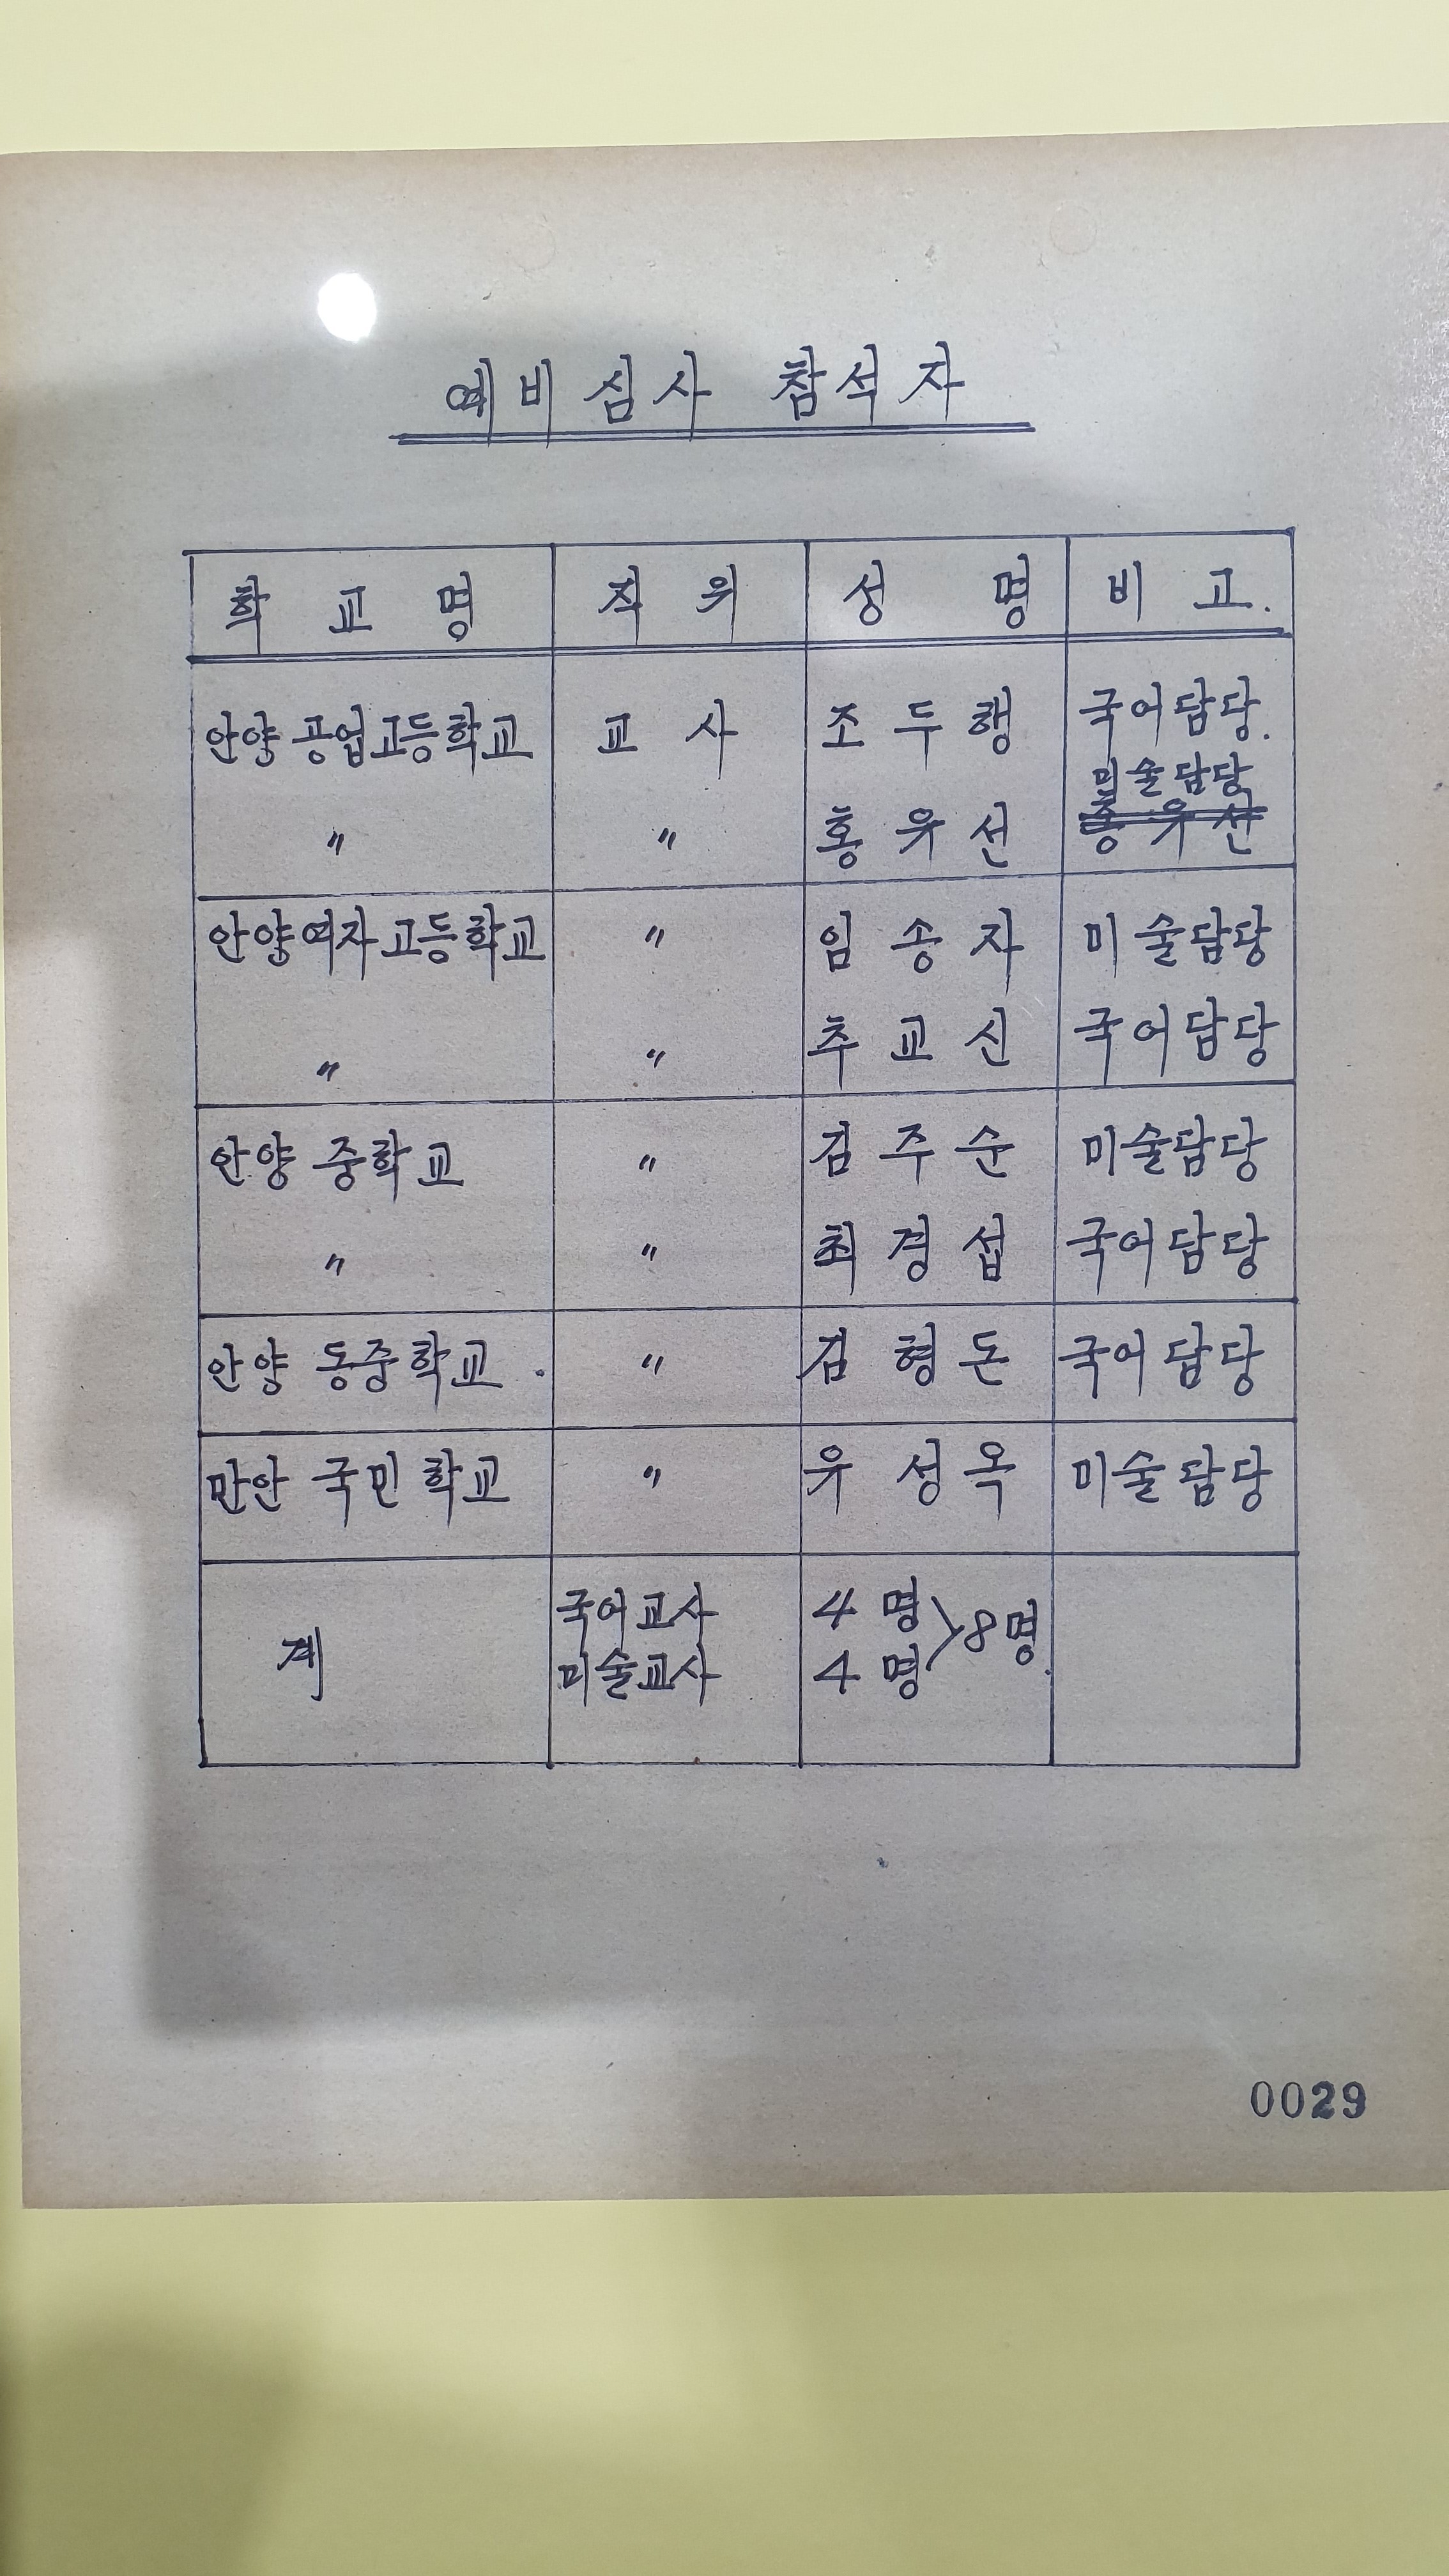 예비심사 참석자
학교명 직위 성명 비고.
안양 공업고등학교 교사 조두행 국어담당.
미술담당
〃 〃 홍유선 홍유선
안양여자고등학교 〃 임송자 미술담당
〃 〃 추교신 국어담당
안양 중학교 〃 김주순 미술담당
〃 〃 최경섭 국어담당
안양 동중학교. 〃 김형돈 국어담당
만안 국민학교 〃 유성옥 미술담당
국어교사 4명
계 > 8명.
미술교사 4명
0029